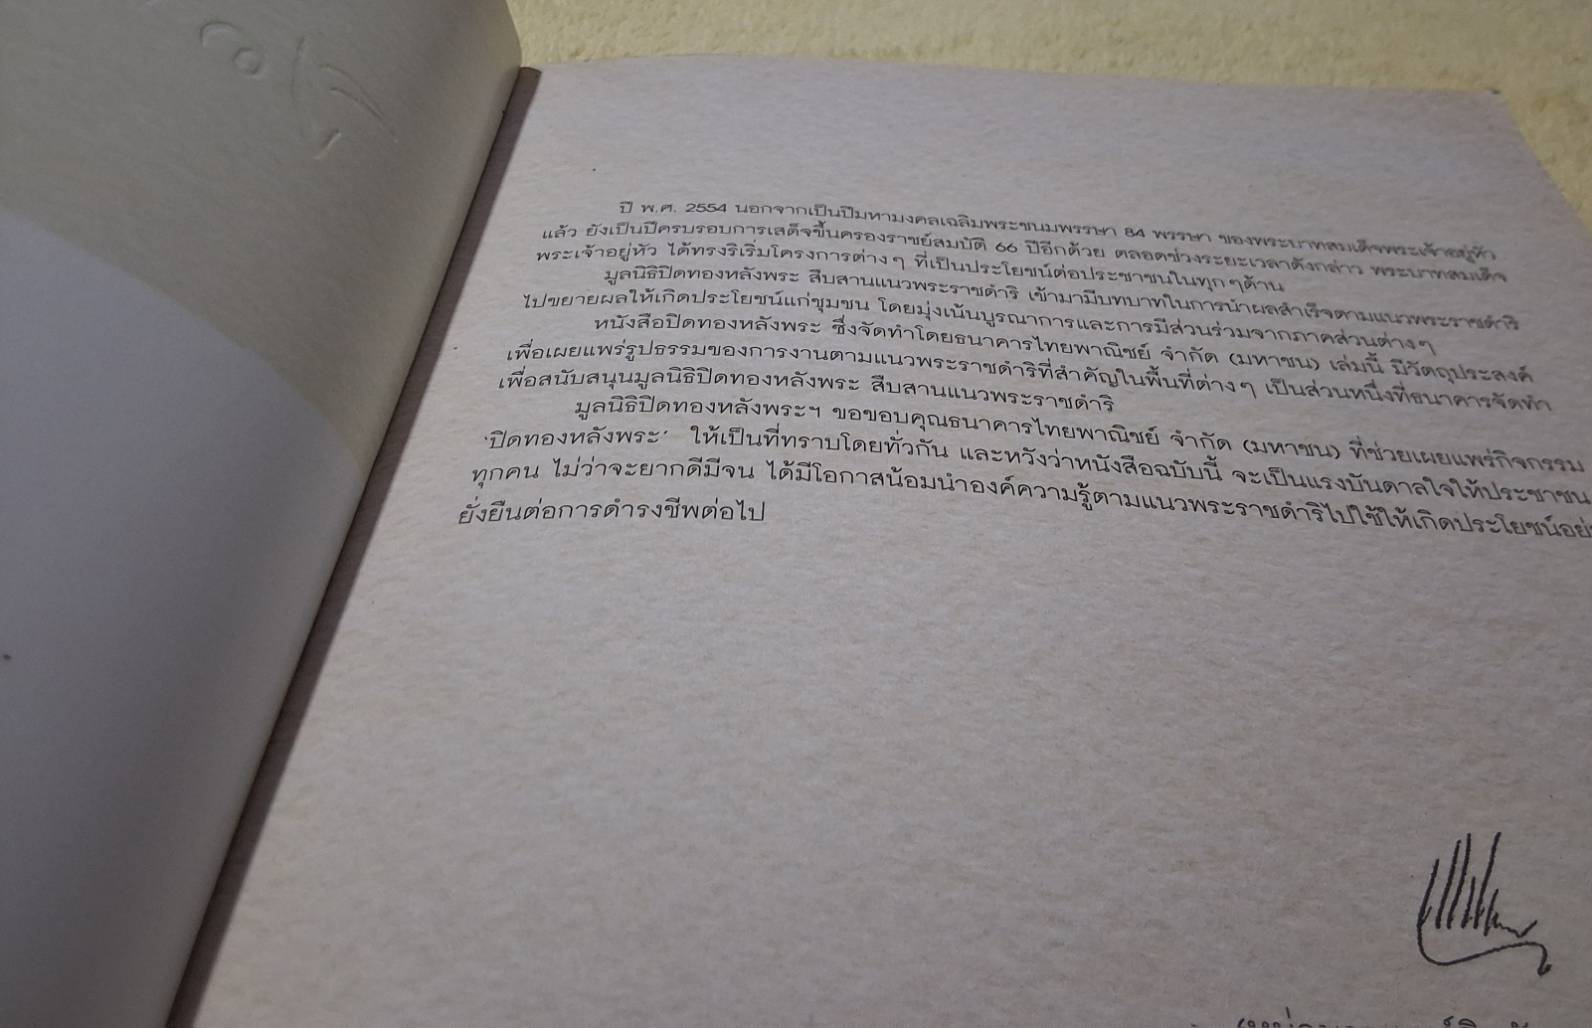 ปี พ.ศ. 2554 นอกจากเป็นปีมหามงคลเฉลิมพระชนมพรรษา 84 พรรษา ของพระบาทสมเด็จพระเจ้าอยู่หัว
แล้ว ยังเป็นปีครบรอบการเสด็จขึ้นครองราชย์สมบัติ 66 ปีอีกด้วย ตลอดช่วงระยะเวลาดังกล่าว พระบาทสมเด็จ
พระเจ้าอยู่หัว ได้ทรงริเริ่มโครงการต่างๆ ที่เป็นประโยชน์ต่อประชาชนในทุกๆด้าน
มูลนิธิปิดทองหลังพระ สืบสานแนวพระราชดำริ เข้ามามีบทบาทในการนำผลสำเร็จตามแนวพระราชดำริ
ไปขยายผลให้เกิดประโยชน์แก่ชุมชน โดยมุ่งเน้นบูรณาการและการมีส่วนร่วมจากภาคส่วนต่างๆ
หนังสือปิดทองหลังพระ ซึ่งจัดทำโดยธนาคารไทยพาณิชย์ จำกัด (มหาชน) เล่มนี้ มีวัตถุประสงค์
เพื่อเผยแพร่รูปธรรมของการงานตามแนวพระราชดำริที่สำคัญในพื้นที่ต่างๆ เป็นส่วนหนึ่งที่ธนาคารจัดทำ
เพื่อสนับสนุนมูลนิธิปิดทองหลังพระ สืบสานแนวพระราชดำริ
มูลนิธิปิดทองหลังพระฯ ขอขอบคุณธนาคารไทยพาณิชย์ จำกัด (มหาชน) ที่ช่วยเผยแพร่กิจกรรม
'ปิดทองหลังพระ' ให้เป็นที่ทราบโดยทั่วกัน และหวังว่าหนังสือฉบับนี้ จะเป็นแรงบันดาลใจให้ประชาชน
ทุกคน ไม่ว่าจะยากดีมีจน ได้มีโอกาสน้อมนำองค์ความรู้ตามแนวพระราชดำริไปใช้ให้เกิดประโยชน์อย่
ยั่งยืนต่อการดำรงชีพต่อไป